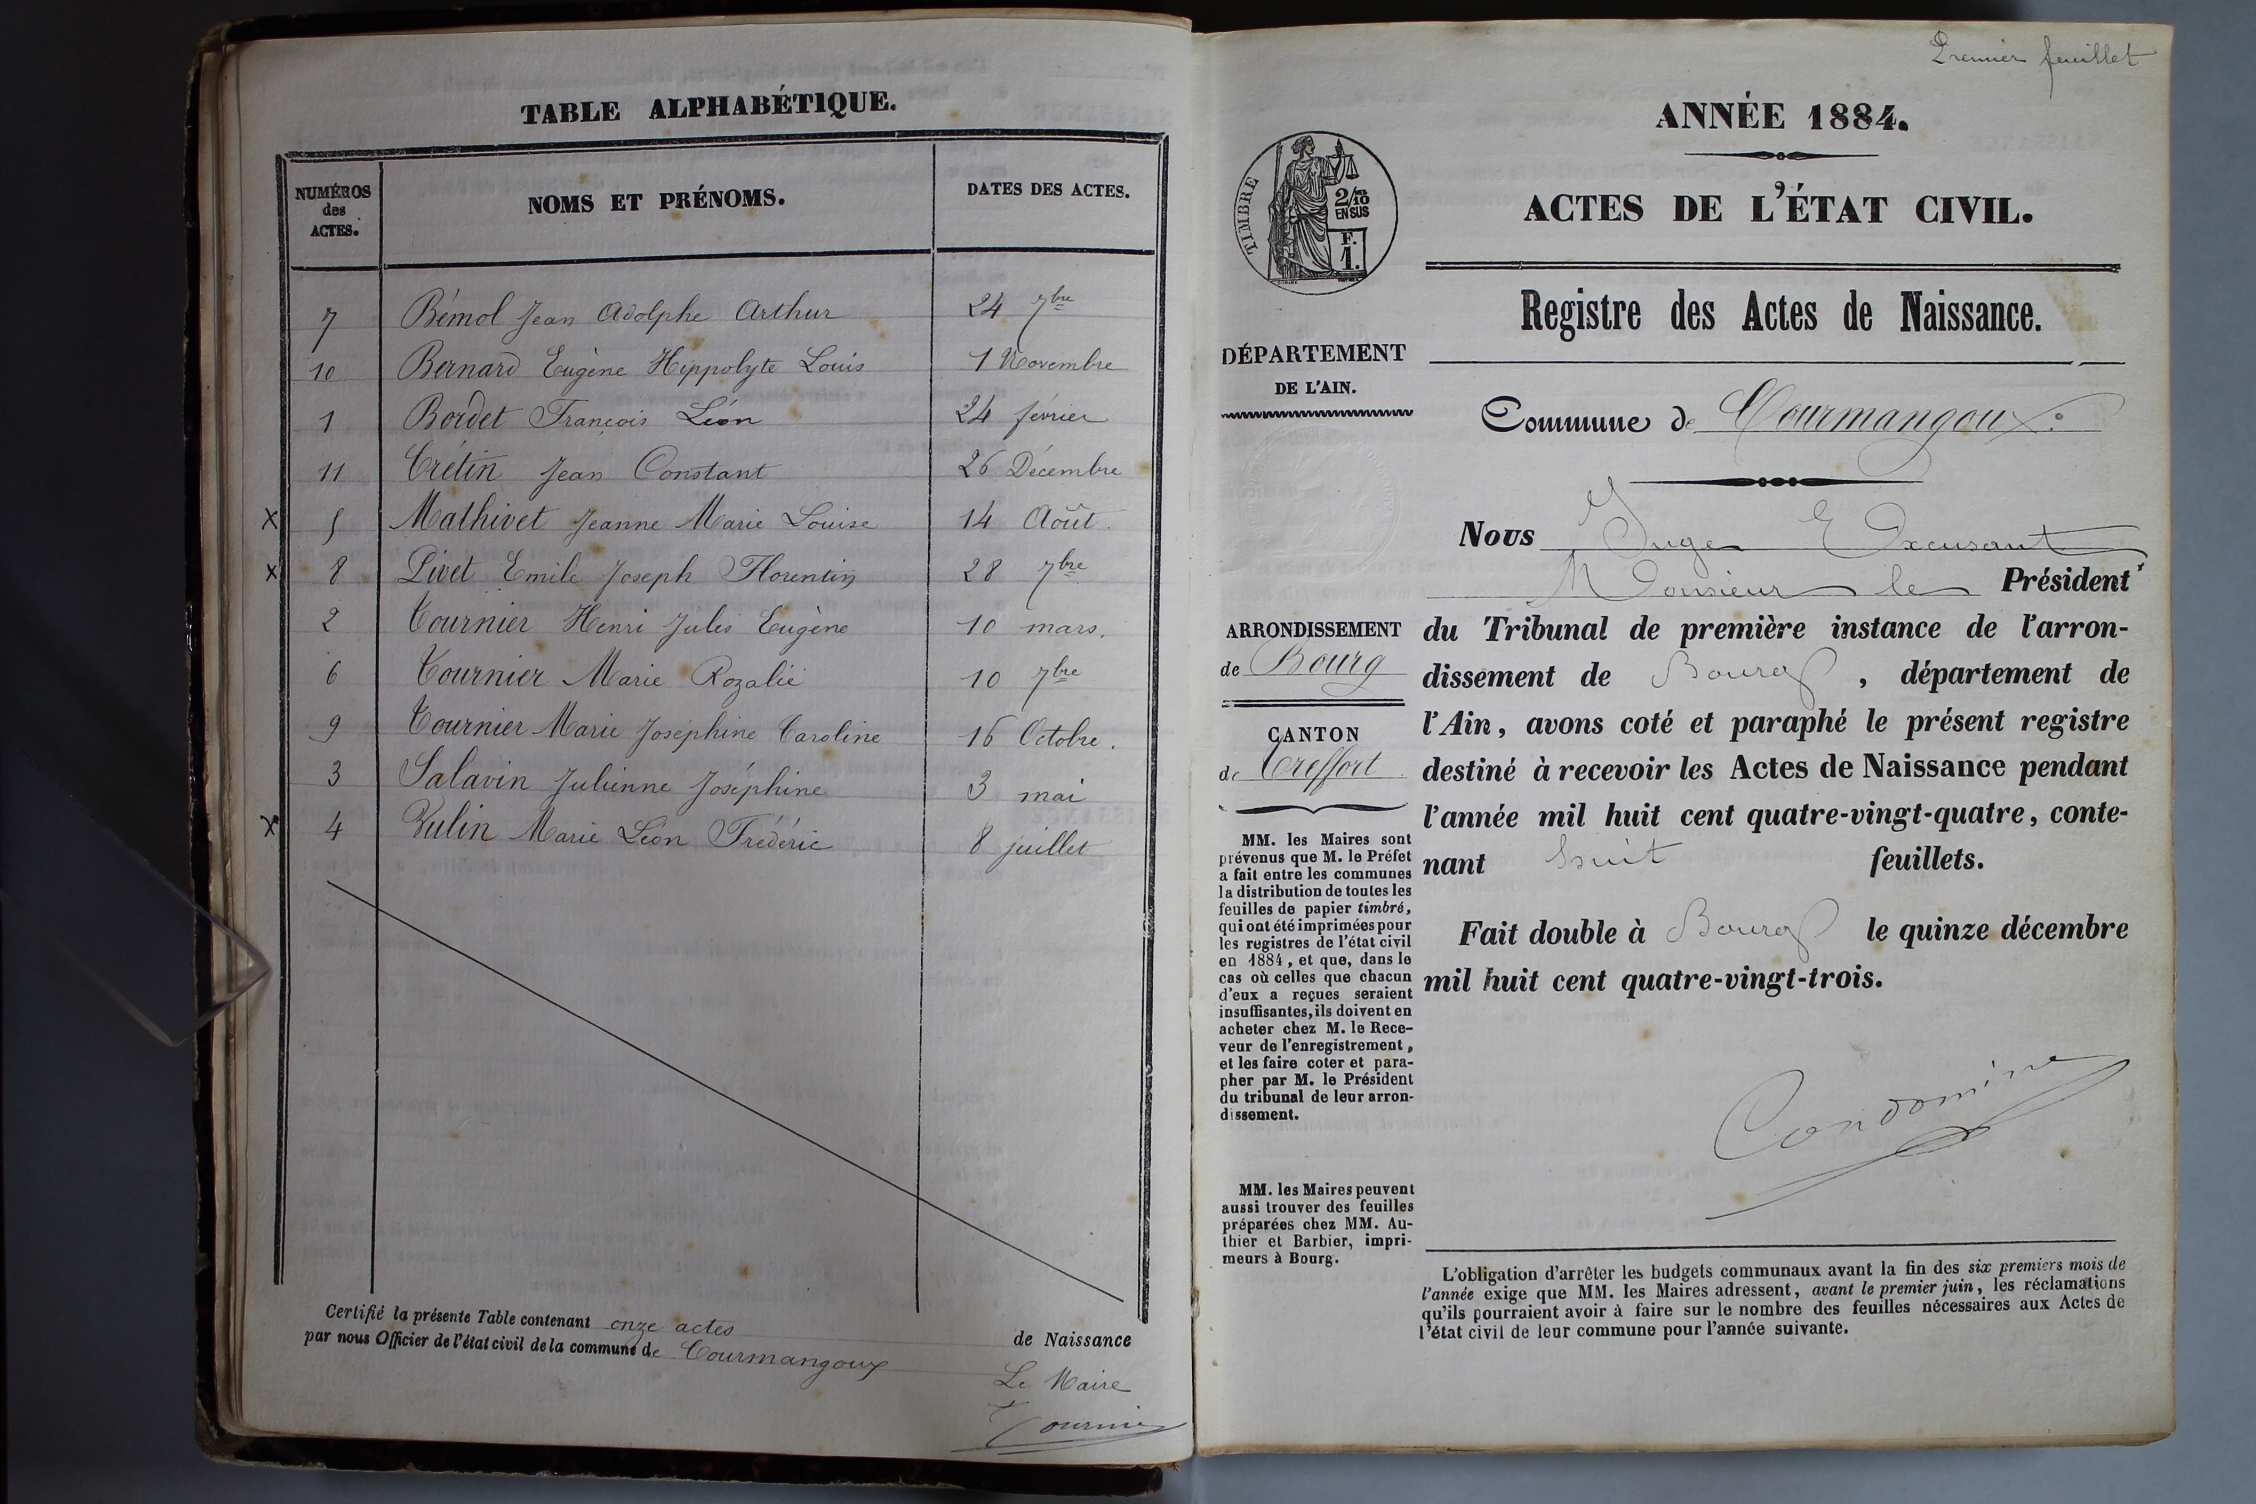 TABLE ALPHABÉTIQUE.
NUMÉROS des ACTES. NOMS ET PRÉNOMS. DATES DES ACTES.
7 Bémol Jean Adolphe Arthur 24 7bre
10 Bernard Eugène Hippolyte Louis 1 Novembre
1 Bordet François Léon 24 février
11 Crétin Jean Constant 26 Décembre
x 5 Mathivet Jeanne Marie Louise 14 Août.
x 8 Pivet Emile Joseph Florentin 28 7bre
2 Tournier Henri Jules Eugène 10 mars.
6 Tournier Marie Rozalie 10 7bre
9 Tournier Marie Joséphine Caroline 16 Octobre.
3 Salavin Julienne Joséphine 3 mai
x 4 Vulin Marie Léon Frédéric 8 juillet
Certifié la présente Table contenant onze actes de Naissance
par nous Officier de l'état civil de la commune de Courmangoux
Le Maire
Tournier
Premier feuillet
ANNÉE 1884.
TIMBRE
2/10 EN SUS
F. 1.
ACTES DE L'ÉTAT CIVIL.
Registre des Actes de Naissance.
DÉPARTEMENT
DE L'AIN.
Commune de Courmangoux.
ARRONDISSEMENT
de Bourg
CANTON
de Treffort
MM. les Maires sont
prévenus que M. le Préfet
a fait entre les communes
la distribution de toutes les
feuilles de papier timbré,
qui ont été imprimées pour
les registres de l'état civil
en 1884, et que, dans le
cas où celles que chacun
d'eux a reçues seraient
insuffisantes, ils doivent en
acheter chez M. le Rece-
veur de l'enregistrement,
et les faire coter et para-
pher par M. le Président
du tribunal de leur arron-
dissement.
MM. les Maires peuvent
aussi trouver des feuilles
préparées chez MM. Au-
thier et Barbier, impri-
meurs à Bourg.
Nous Juge Excusant
Monsieur le Président
du Tribunal de première instance de l'arron-
dissement de Bourg, département de
l'Ain, avons coté et paraphé le présent registre
destiné à recevoir les Actes de Naissance pendant
l'année mil huit cent quatre-vingt-quatre, conte-
nant huit feuillets.
Fait double à Bourg le quinze décembre
mil huit cent quatre-vingt-trois.
Condomine
L'obligation d'arrêter les budgets communaux avant la fin des six premiers mois de
l'année exige que MM. les Maires adressent, avant le premier juin, les réclamations
qu'ils pourraient avoir à faire sur le nombre des feuilles nécessaires aux Actes de
l'état civil de leur commune pour l'année suivante.